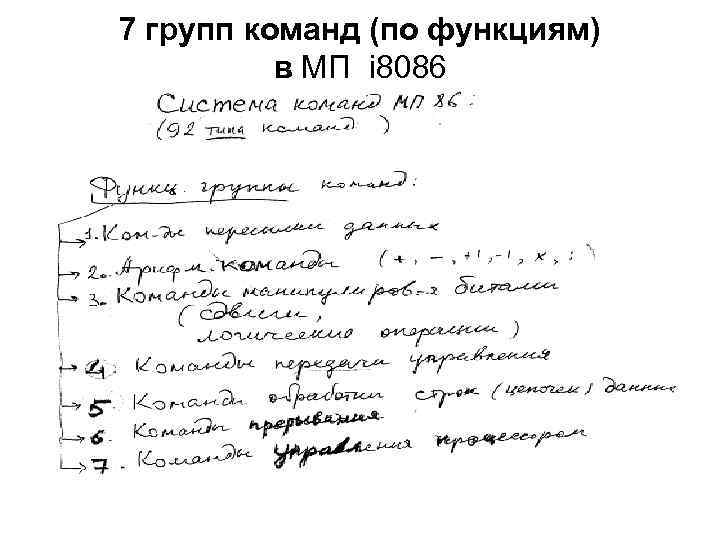 7 групп команд (по функциям)
в МП i8086
Система команд МП 86:
(92 типа команд)
Функц. группы команд:
1. Ком-ды пересылки данных
2. Арифм. команды (+, −, +1, -1, x, :)
3. Команды манипулиров-я битами
(сдвиги,
логические операции)
4. Команды передачи управления
5. Команды обработки строк (цепочек) данных
6. Команды прерывания
7. Команды управления процессором